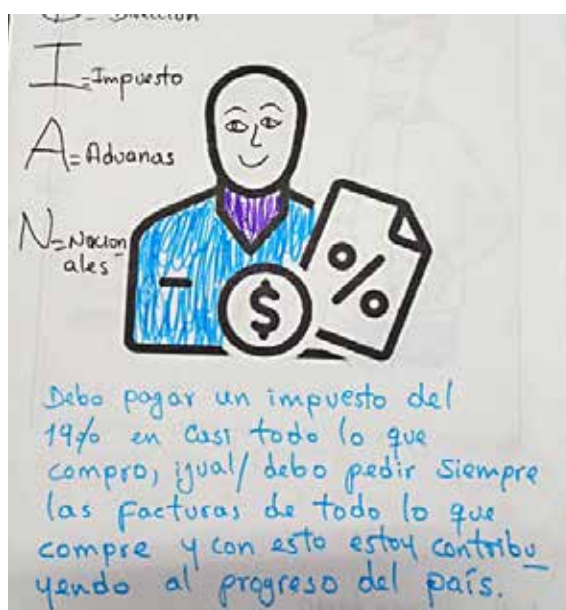 D= Dirección
I=Impuesto
A=Aduanas
N=Nacion
ales
$
%
Debo pagar un impuesto del
19% en casi todo lo que
compro, igual/ debo pedir siempre
las facturas de todo lo que
compre y con esto estoy contribu_
yendo al progreso del país.